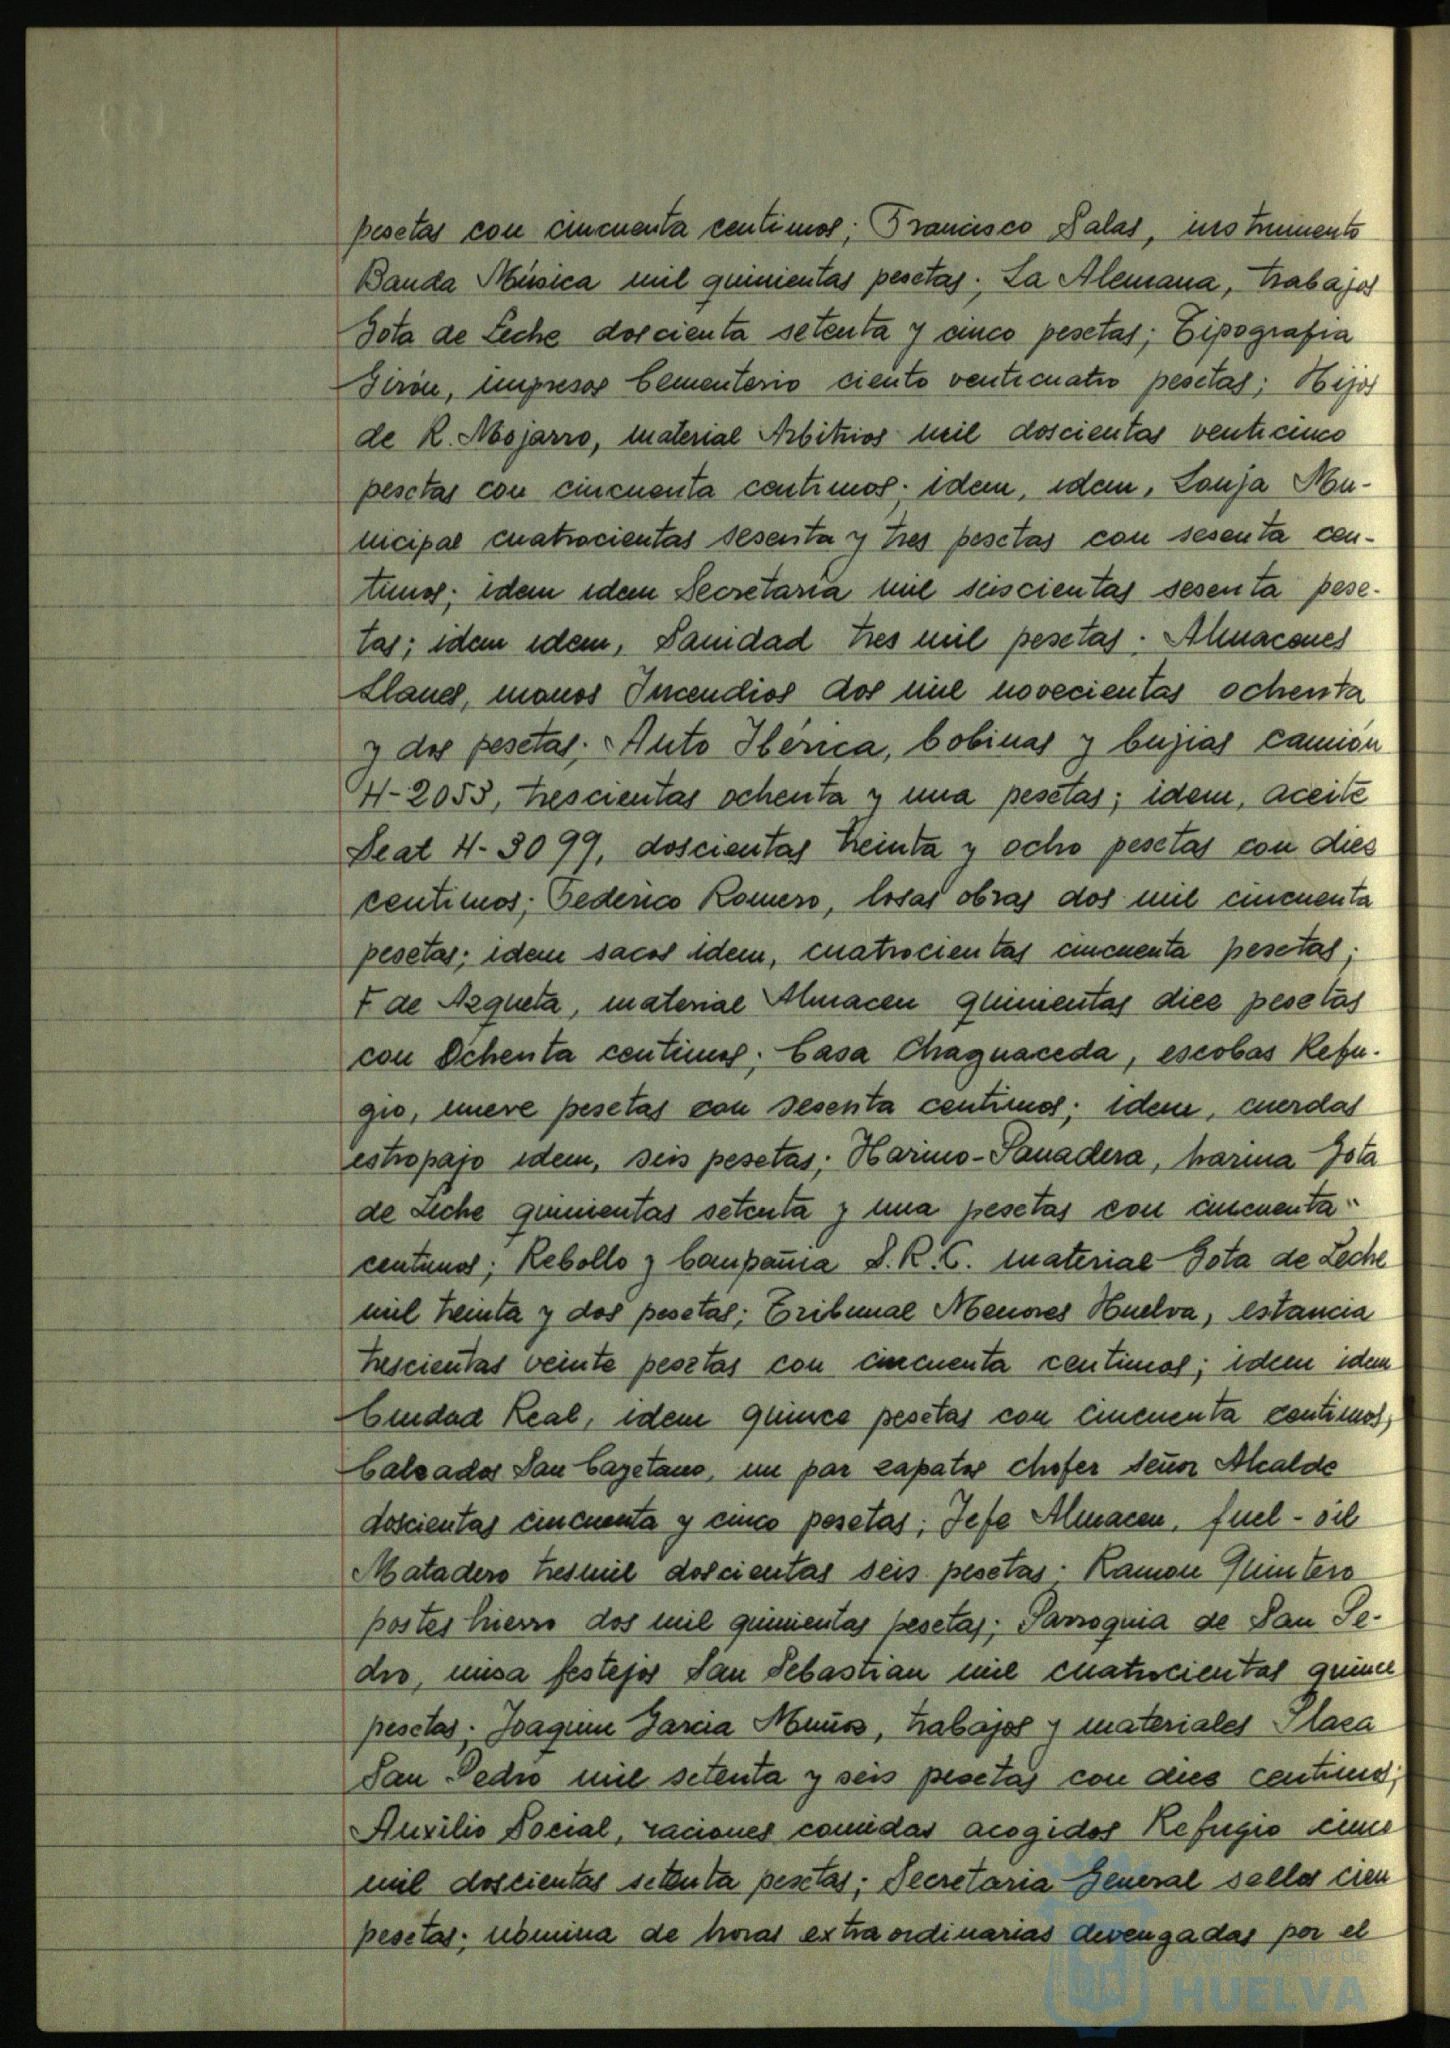 pesetas con cincuenta centimos; Francisco Salas, instrumento
Banda Música mil quinientas pesetas; La Alemana, trabajos
Gota de Leche doscienta setenta y cinco pesetas; Tipografia
Girón, impresos Cementerio ciento venticuatro pesetas; Hijos
de R. Mojarro, material Arbitrios mil doscientas venticinco
pesetas con cincuenta centimos; idem, idem, Lonja Mu-
nicipal cuatrocientas sesenta y tres pesetas con sesenta cen-
timos; idem idem Secretaría mil seiscientas sesenta pese-
tas; idem idem, Sanidad tres mil pesetas; Almacenes
Llanes, monos Incendios dos mil novecientas ochenta
y dos pesetas; Auto Ibérica, bobinas y bujias camión
H-2053, trescientas ochenta y una pesetas; idem, aceite
Seat H-3099, doscientas treinta y ocho pesetas con diez
centimos; Federico Romero, losas obras dos mil cincuenta
pesetas; idem sacos idem, cuatrocientas cincuenta pesetas;
F de Azqueta, material Almacen quinientas diez pesetas
con Ochenta centimos; Casa Chaguaceda, escobas Refu-
gio, nueve pesetas con sesenta centimos; idem, cuerdas
estropajo idem, seis pesetas; Harino-Panadera, harina Gota
de Leche quinientas setenta y una pesetas con cincuenta
centimos; Rebollo y Compañia S.R.C. material Gota de Leche
mil treinta y dos pesetas; Tribunal Menores Huelva, estancia
trescientas veinte pesetas con cincuenta centimos; idem idem
Ciudad Real, idem quince pesetas con cincuenta centimos,
Calzados San Cayetano, un par zapatos chofer señor Alcalde
doscientas cincuenta y cinco pesetas; Jefe Almacen, fuel-oil
Matadero tresmil doscientas seis pesetas; Ramon Quintero
postes hierro dos mil quinientas pesetas; Parroquia de San Pe-
dro, misa festejos San Sebastian mil cuatrocientas quince
pesetas; Joaquin Garcia Muñoz, trabajos y materiales Plaza
San Pedro mil setenta y seis pesetas con diez centimos;
Auxilio Social, raciones comidas acogidos Refugio cinco
mil doscientas setenta pesetas; Secretaria General sellos cien
pesetas; nómina de horas extraordinarias devengadas por el
Ayuntamiento de
HUELVA